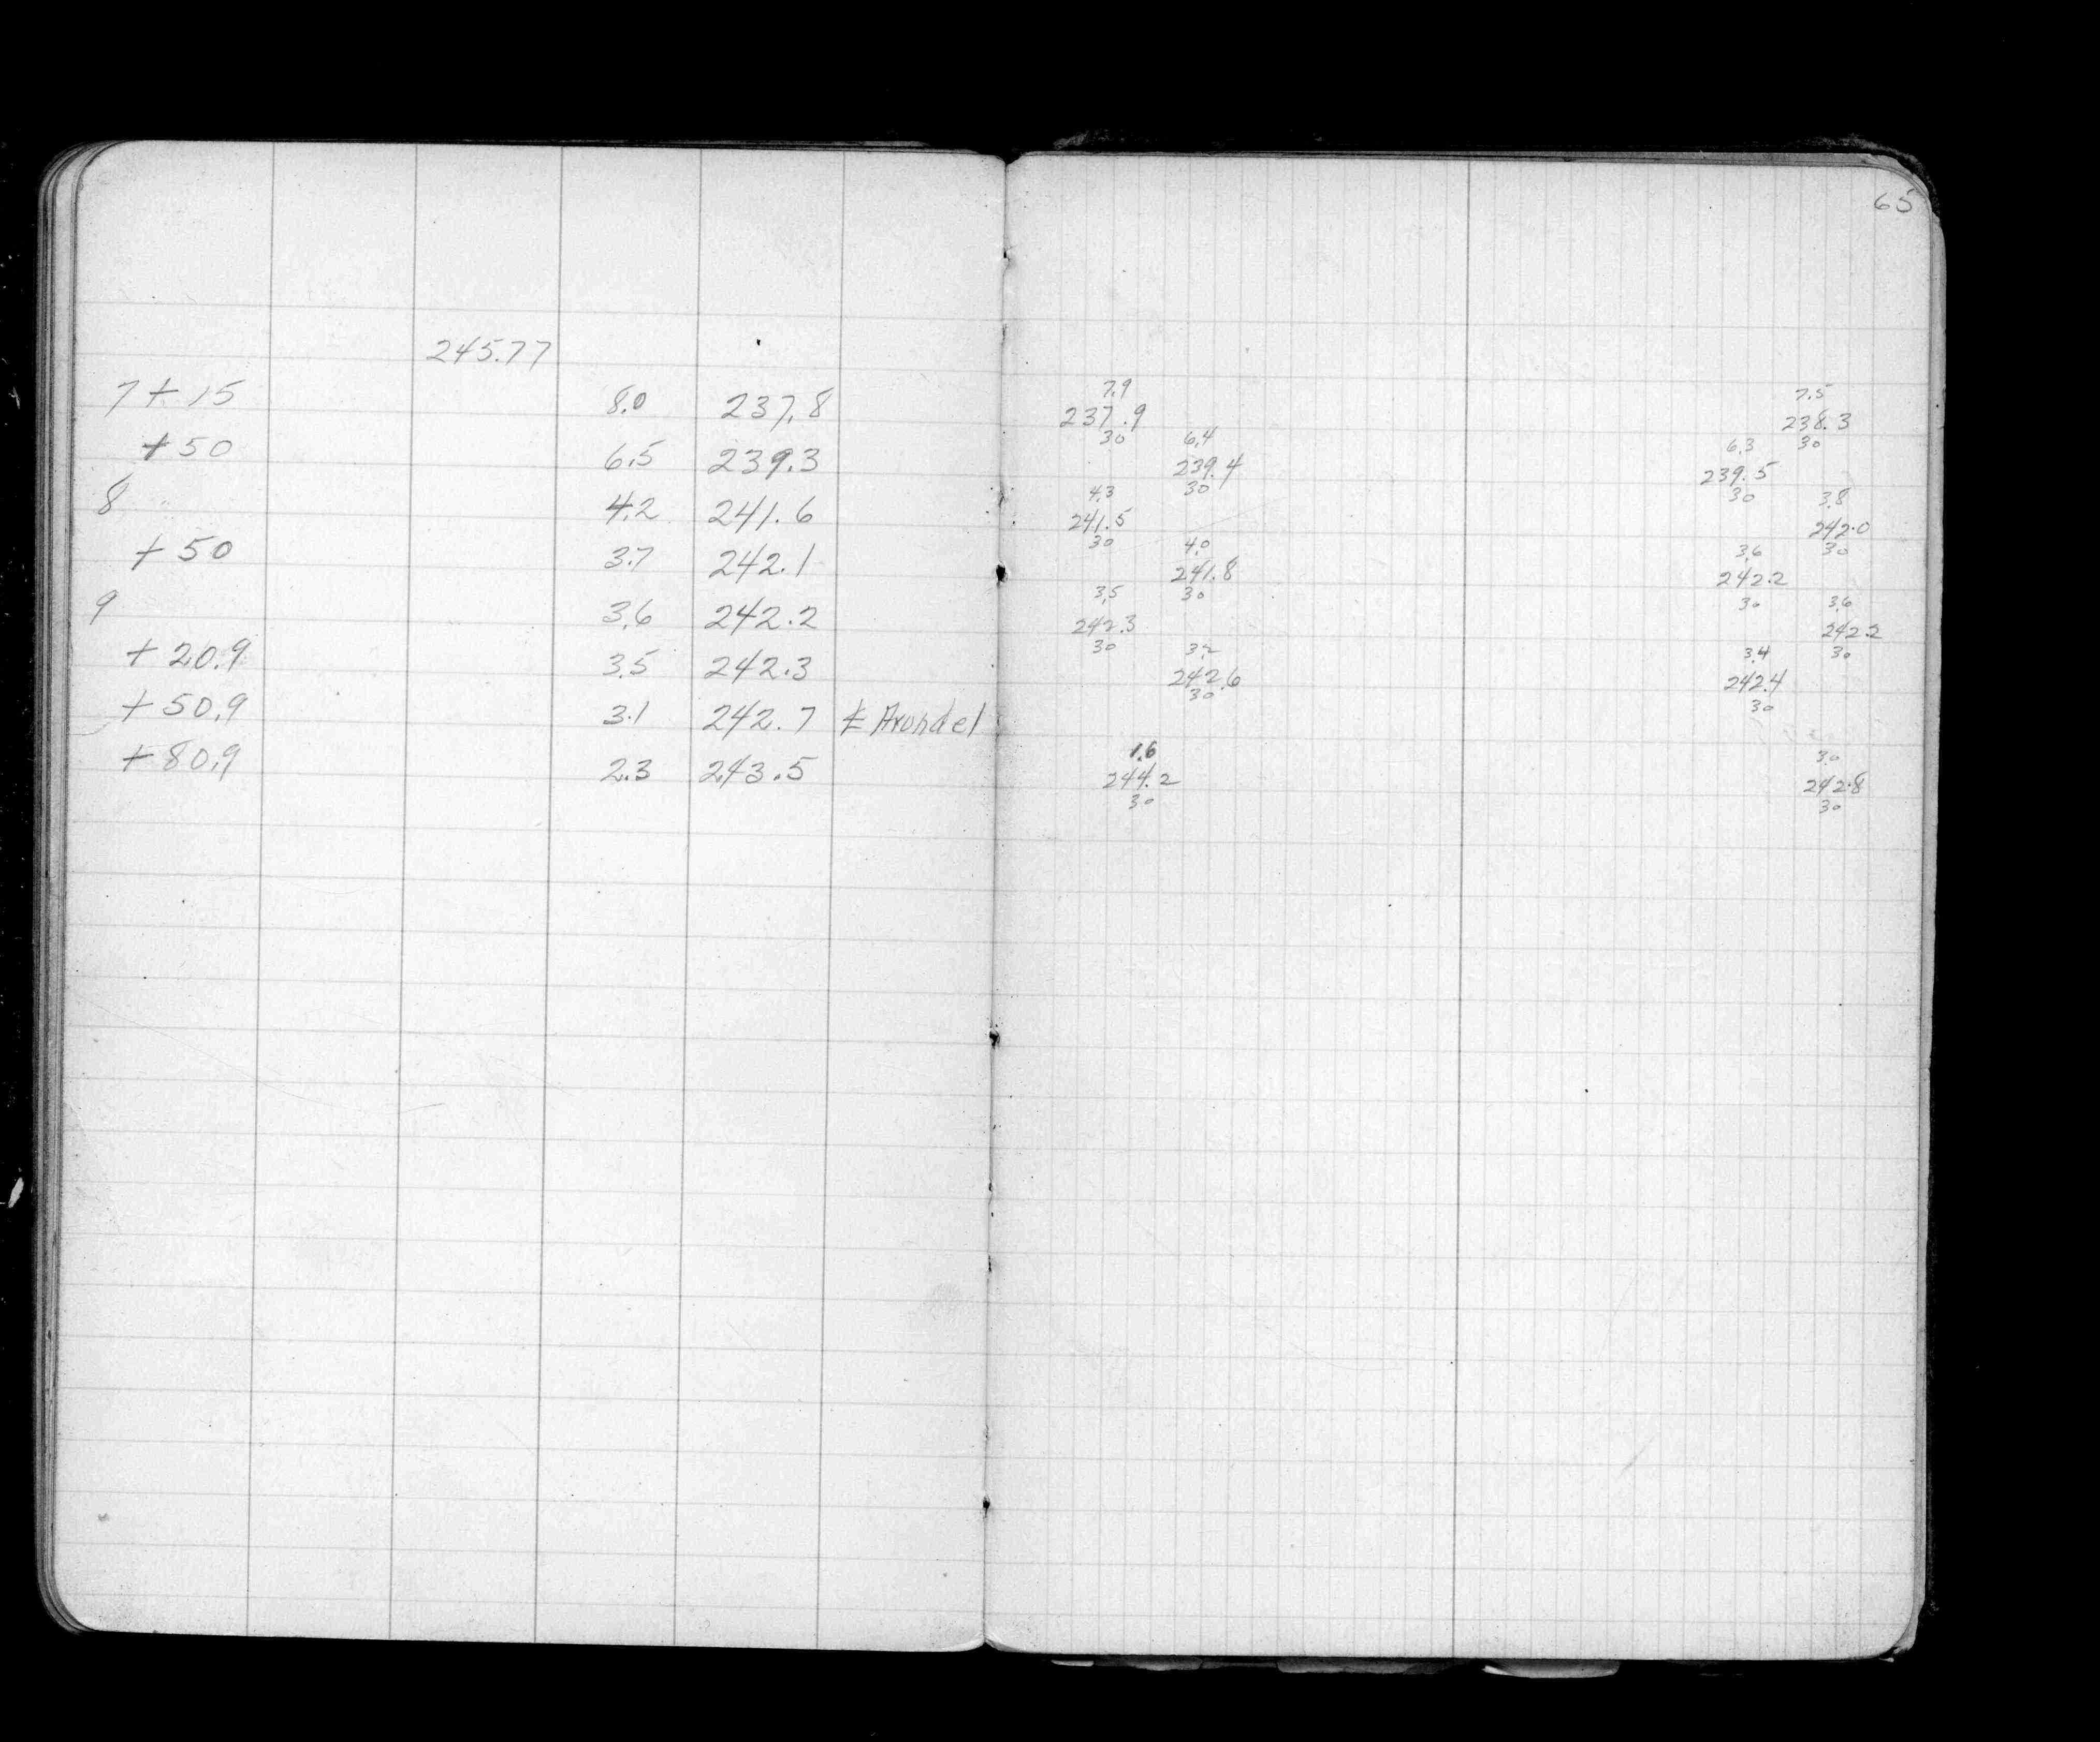 65
245.77
7+15 8.0 237.8
+50 6.5 239.3
8 4.2 241.6
+50 3.7 242.1
9 3.6 242.2
+20.9 3.5 242.3
+50.9 3.1 242.7 ℄ Arundel
+80.9 2.3 243.5
7.9 7.5
237.9 238.3
30 6.4 6.3 30
239.4 239.5
4.3 30 30 3.8
241.5 242.0
30 4.0 3.6 30
241.8 242.2
3.5 30 30 3.6
242.3 242.2
30 3.2 3.4 30
242.6 242.4
30 30
1.6 3.0
244.2 242.8
30 30